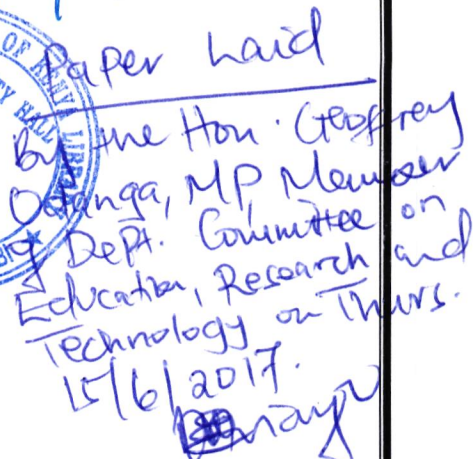 Paper Laid
By the Hon. Geoffrey
Odanga, MP, Member
of Dept. Committee on
Education, Research and
Technology on Thurs.
15/6/2017.
OF KENYA LIBRARY